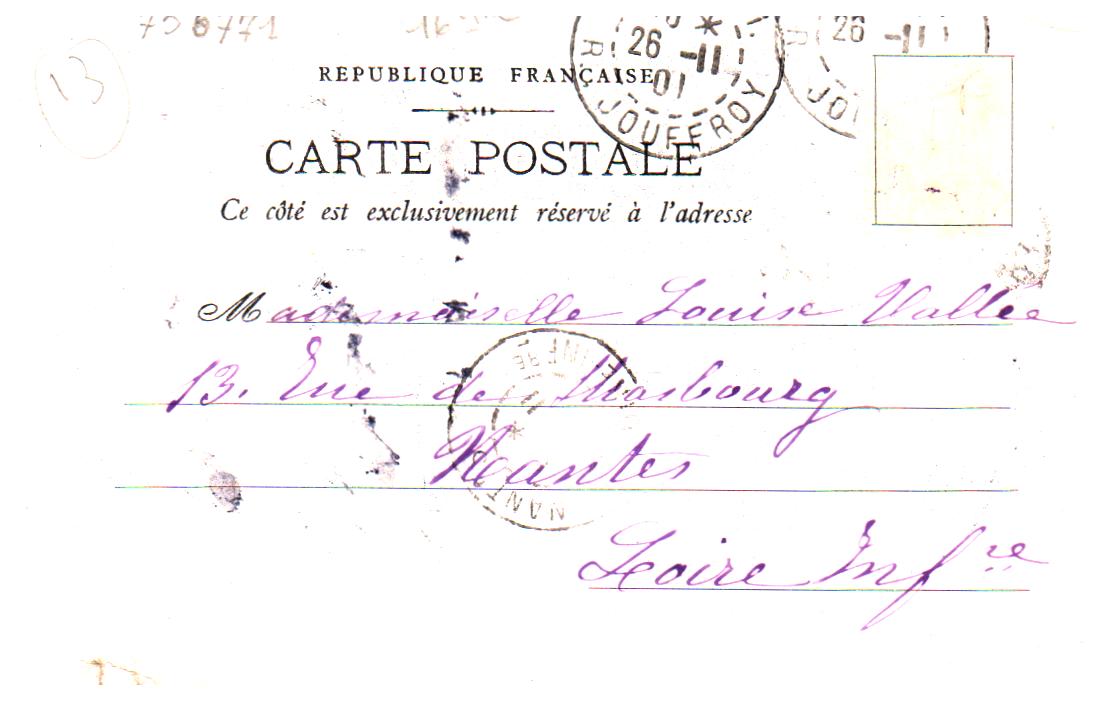 750771
13
REPUBLIQUE FRANÇAISE
26 -11 01
R. JOUFFROY
26 -11
R. JO
CARTE POSTALE
Ce côté est exclusivement réservé à l'adresse
Mademoiselle Louise Vallée
13. Rue de Strasbourg
Nantes
NANT
Loire Infre